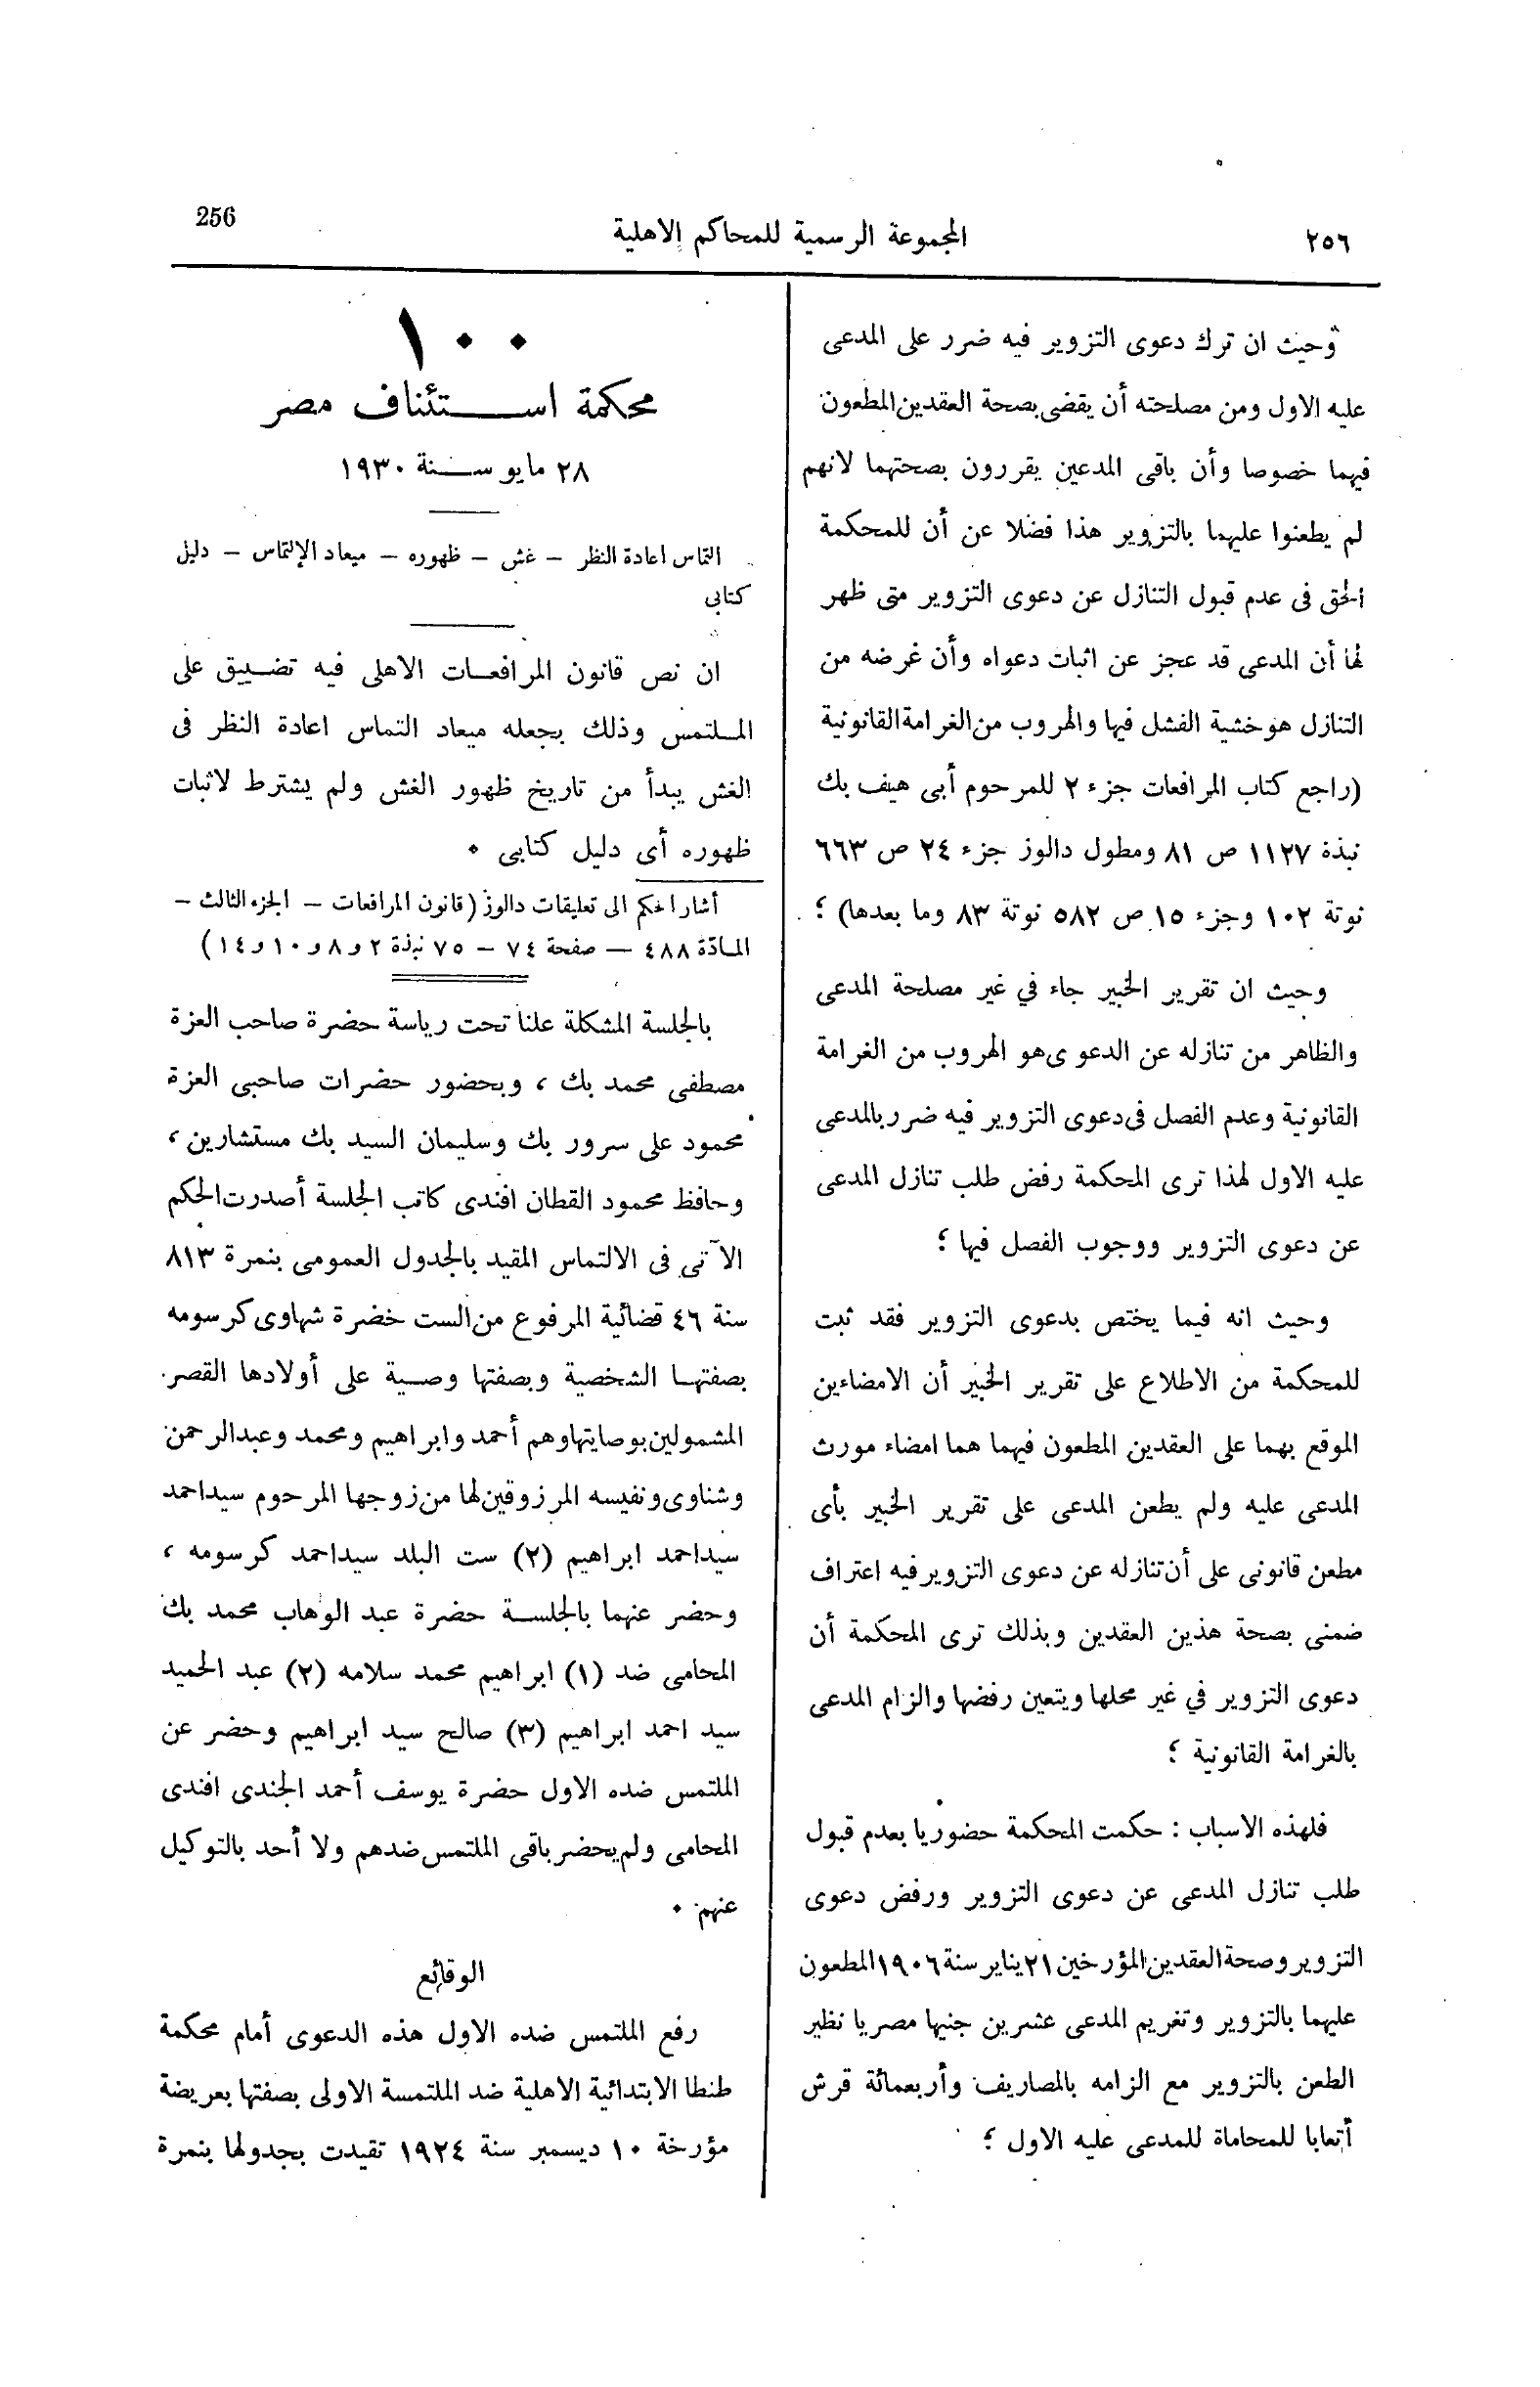 ٢٥٦
المجموعة الرسمية للمحاكم الاهلية
256
وحيث ان ترك دعوى التزوير فيه ضرر على المدعى
عليه الاول ومن مصلحته أن يقضى بصحة العقدين المطعون
فيهما خصوصا وأن باقى المدعين يقررون بصحتهما لانهم
لم يطعنوا عليهما بالتزوير هذا فضلا عن أن للمحكمة
الحق فى عدم قبول التنازل عن دعوى التزوير متى ظهر
لها أن المدعى قد عجز عن اثبات دعواه وأن غرضه من
التنازل هو خشية الفشل فيها والهروب من الغرامة القانونية
(راجع كتاب المرافعات جزء ٢ للمرحوم أبى هيف بك
نبذة ١١٢٧ ص ٨١ ومطول دالوز جزء ٢٤ ص ٦٦٣
نوتة ١٠٢ وجزء ١٥ ص ٥٨٢ نوتة ٨٣ وما بعدها) ؛
وحيث ان تقرير الخبير جاء في غير مصلحة المدعى
والظاهر من تنازله عن الدعوى هو الهروب من الغرامة
القانونية وعدم الفصل فى دعوى التزوير فيه ضرر بالمدعى
عليه الاول لهذا ترى المحكمة رفض طلب تنازل المدعى
عن دعوى التزوير ووجوب الفصل فيها ؛
وحيث انه فيما يختص بدعوى التزوير فقد ثبت
للمحكمة من الاطلاع على تقرير الخبير أن الامضاءين
الموقع بهما على العقدين المطعون فيهما هما امضاء مورث
المدعى عليه ولم يطعن المدعى على تقرير الخبير بأى
مطعن قانونى على أن تنازله عن دعوى التزوير فيه اعتراف
ضمنى بصحة هذين العقدين وبذلك ترى المحكمة أن
دعوى التزوير في غير محلها ويتعين رفضها والزام المدعى
بالغرامة القانونية ؛
فلهذه الاسباب : حكمت المحكمة حضوريا بعدم قبول
طلب تنازل المدعى عن دعوى التزوير ورفض دعوى
التزوير وصحة العقدين المؤرخين ٢١ يناير سنة ١٩٠٦ المطعون
عليهما بالتزوير وتغريم المدعى عشرين جنيها مصريا نظير
الطعن بالتزوير مع الزامه بالمصاريف وأربعمائة قرش
أتعابا للمحاماة للمدعى عليه الاول ؛
١٠٠
محكمة استئناف مصر
٢٨ مايو سنة ١٩٣٠
التماس اعادة النظر – غش – ظهوره – ميعاد الإلتماس – دليل
كتابى
ان نص قانون المرافعات الاهلى فيه تضييق على
الملتمس وذلك بجعله ميعاد التماس اعادة النظر فى
الغش يبدأ من تاريخ ظهور الغش ولم يشترط لاثبات
ظهوره أى دليل كتابى ٠
أشار الحكم الى تعليقات دالوز (قانون المرافعات – الجزء الثالث –
المادّة ٤٨٨ – صفحة ٧٤ – ٧٥ نبذة ٢ و٨ و١٠ و١٤)
بالجلسة المشكلة علنا تحت رياسة حضرة صاحب العزة
مصطفى محمد بك ، وبحضور حضرات صاحبى العزة
محمود على سرور بك وسليمان السيد بك مستشارين ،
وحافظ محمود القطان افندى كاتب الجلسة أصدرت الحكم
الآتى فى الالتماس المقيد بالجدول العمومى بنمرة ٨١٣
سنة ٤٦ قضائية المرفوع من الست خضرة شهاوى كرسومه
بصفتها الشخصية وبصفتها وصية على أولادها القصر
المشمولين بوصايتها وهم أحمد وابراهيم ومحمد وعبد الرحمن
وشناوى ونفيسه المرزوقين لها من زوجها المرحوم سيداحمد
سيداحمد ابراهيم (٢) ست البلد سيداحمد كرسومه ،
وحضر عنهما بالجلسة حضرة عبد الوهاب محمد بك
المحامى ضد (١) ابراهيم محمد سلامه (٢) عبد الحميد
سيد احمد ابراهيم (٣) صالح سيد ابراهيم وحضر عن
الملتمس ضده الاول حضرة يوسف أحمد الجندى افندى
المحامى ولم يحضر باقى الملتمس ضدهم ولا أحد بالتوكيل
عنهم ٠
الوقائع
رفع الملتمس ضده الاول هذه الدعوى أمام محكمة
طنطا الابتدائية الاهلية ضد الملتمسة الاولى بصفتها بعريضة
مؤرخة ١٠ ديسمبر سنة ١٩٢٤ تقيدت بجدولها بنمرة